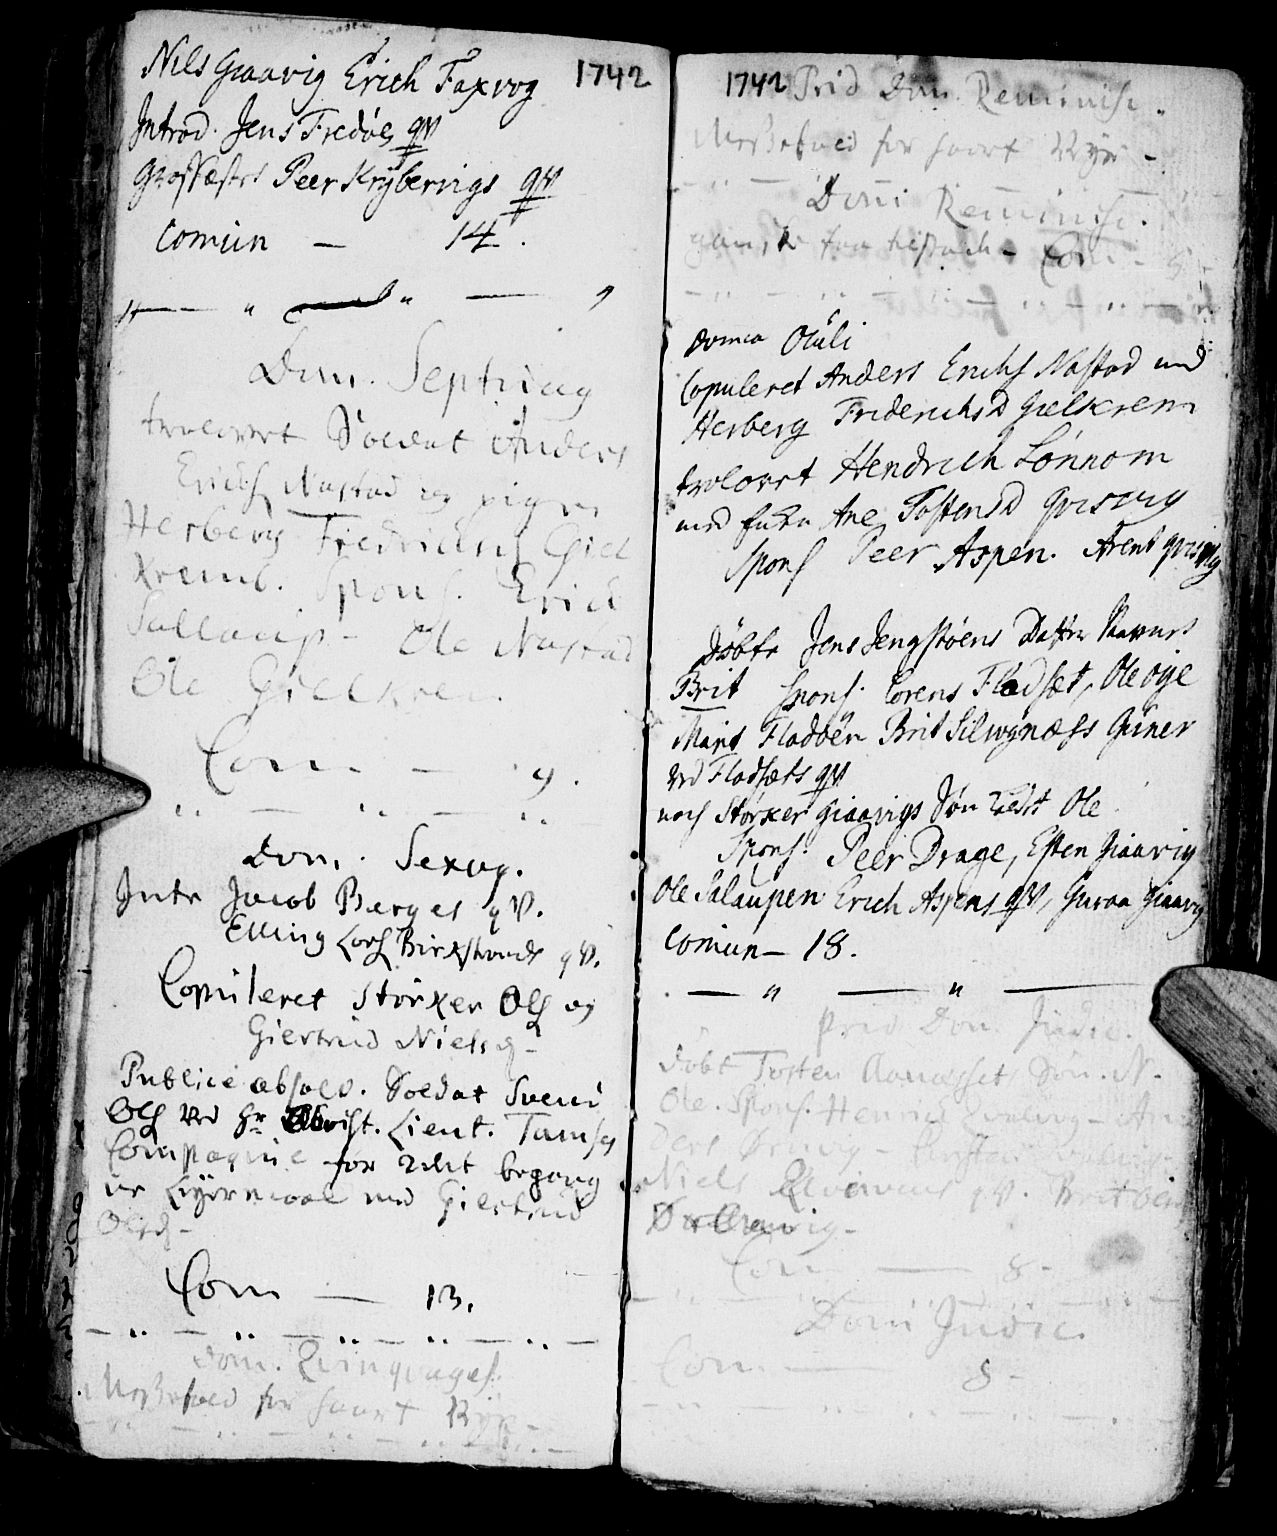 Nils Giaavig Erich Faxvog 1742
Introd. Jens Fredøes qv
Peer Krÿbervigs qv
Comun — 14.
Dom. Septuag
trolovet Soldat Anders
Erichs Nastad og pigen
Herberg Fredrichs Giel
krems. Spons. Erich
Sallaup - Ole Nastad
Ole Gielkrem.
Com — 9.
Dom. Sexag.
Intr Jacob Berges qv.
Elling Lars Birkstrands qv.
Copuleret Størker Ols og
Giertrud Nielsd -
Publice absolv. Soldat Svend
Ols ved Hr Obrist. Lieut. Tamses
Compagnie for 2det begang
ne Leyermaal med Giertrud
Olsd -
Com — 13.
Dom. Qvinqvages.
Messefald for haart Vejr -
1742 Prid Dom. Reminisc.
Messefald for haart Vejr -
Domi Reminisc.
Com - 8
Domca Oculi
Copuleret Anders Erichs Nastad med
Herberg Friderichsd Gielkrem
trolovet Hendrich Lønnom
med Ane Tostensd Qvisvig
Spons Peer Aspen. Arent Qvisvig
døbte Jens Jengstøens Datter kaldet
Brit Spons. Lorens Fladset, Ole øÿe
Marit Fladøen Brit Silwgnæss Guner
ved Fladsæts qv
noch Størker Giaavigs Søn kaldet Ole
Spons. Peer Drage, Esten Giaavig
Ole Salaupen Erich Aspens qv, Guraa Giaavig
Comun — 18.
Prid. Dom. Judic.
døbt Tosten Aanæssets Søn. N.
Ole. Spons. Henrich Qvalvig - An
ders Ørnvig -
Niels qv. Brit
Com — 8 -
Domi Judic.
Com. — 8 -